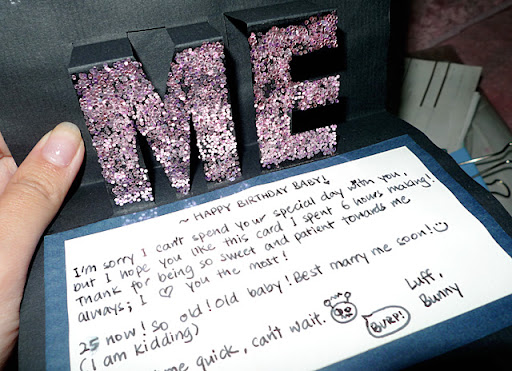 ME
~ HAPPY BIRTHDAY BABY!
I'm sorry I can't spend your special day with you,
but I hope you like this card I spent 6 hours making!
Thank for being so sweet and patient towards me
always; I ♡ you the most!
25 now! So old! Old baby! Best marry me soon! ☺
(I am kidding)
me quick, can't wait.
BURP!
Luff,
Bunny